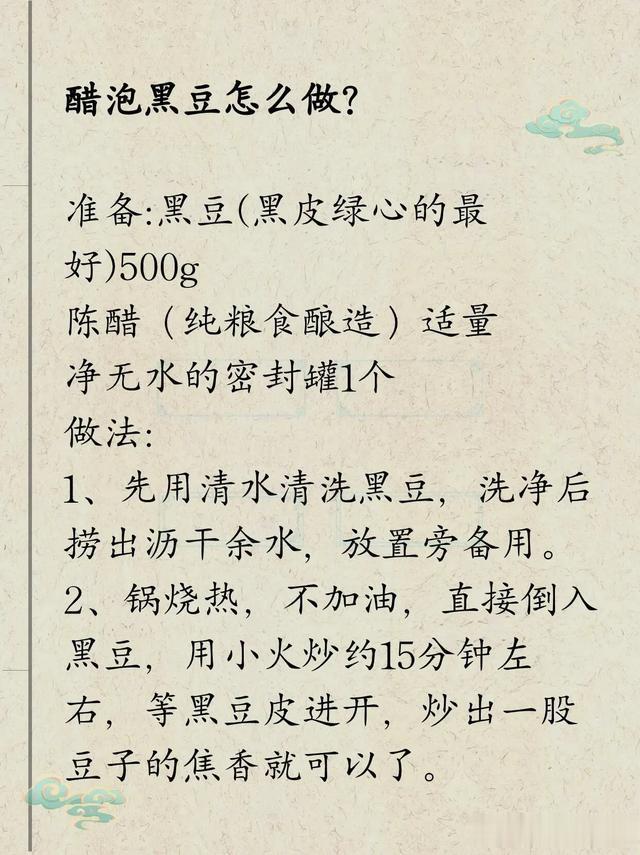 醋泡黑豆怎么做？
准备:黑豆(黑皮绿心的最
好)500g
陈醋（纯粮食酿造）适量
净无水的密封罐1个
做法:
1、先用清水清洗黑豆，洗净后
捞出沥干余水，放置旁备用。
2、锅烧热，不加油，直接倒入
黑豆，用小火炒约15分钟左
右，等黑豆皮进开，炒出一股
豆子的焦香就可以了。